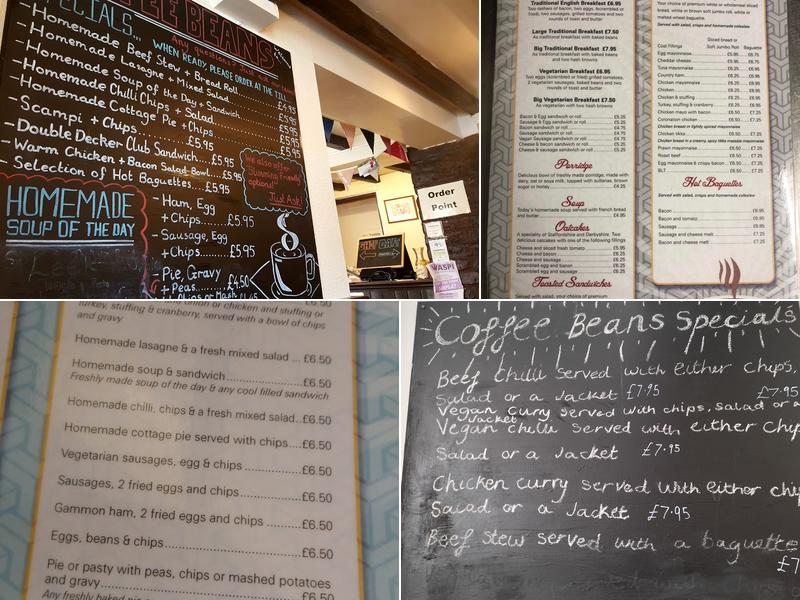 SPECIALS... COFFEE BEANS
Any questions? Just ask
WHEN READY, PLEASE ORDER AT THE TILL
- Homemade Beef Stew + Bread Roll
- Homemade Lasagne + Mixed Salad £4.95
- Homemade Soup of the Day + Sandwich £5.95
- Homemade Chilli Chips + Salad £5.95
- Homemade Cottage Pie + Chips £5.95
- Scampi + Chips £5.95
- Double Decker Club Sandwich....£5.95
- Warm Chicken + Bacon Salad Bowl....£5.95
- Selection of Hot Baguettes....£5.95
We also offer
Slimming Friendly
options!
Just Ask!
HOMEMADE
SOUP OF THE DAY
- Ham, Egg
+ Chips....£5.95
- Sausage, Egg
+ Chips....£5.95
- Pie, Gravy
+ Peas....£4.50
Order
Point
WASPI
Traditional English Breakfast £6.95
Two rashers of bacon, two eggs, (scrambled or
fried), two sausages, grilled tomatoes and two
rounds of toast and butter
Large Traditional Breakfast £7.50
As traditional breakfast with baked beans
Big Traditional Breakfast £7.95
As traditional breakfast with baked beans
and two hash browns
Vegetarian Breakfast £6.95
Two eggs (scrambled or fried) grilled tomatoes,
2 vegetarian sausages, baked beans and two
rounds of toast and butter
Big Vegetarian Breakfast £7.50
As vegetarian with two hash browns
Bacon & Egg sandwich or roll £5.25
Sausage & Egg sandwich or roll £5.25
Bacon sandwich or roll £4.75
Sausage sandwich or roll £4.75
Vegan Sausage sandwich or roll £4.75
Cheese & bacon sandwich or roll £5.25
Cheese & sausage sandwich or roll £5.25
Porridge
Delicious bowl of freshly made porridge, made with
dairy, oat or soya milk, topped with sultanas, brown
sugar or honey £4.25
Soup
Today's homemade soup served with french bread
and butter £4.95
Oatcakes
A speciality of Staffordshire and Derbyshire. Two
delicious oatcakes with one of the following fillings
Cheese and sliced fresh tomato £5.95
Cheese and bacon £5.95
Cheese and sausage £6.25
Scrambled egg and bacon £6.25
Scrambled egg and sausage £6.25
Toasted Sandwiches
Served with salad, your choice of premium
Your choice of premium white or wholemeal sliced
bread, white or brown soft jumbo roll, white or
malted wheat baguette
Served with salad, crisps and homemade coleslaw
Sliced bread or
Cold Fillings Soft Jumbo Roll Baguette
Egg mayonnaise £5.95 £6.75
Cheddar cheese £5.95 £6.75
Tuna mayonnaise £5.95
Country ham £5.95
Chicken mayonnaise
Chicken
Chicken & stuffing
Turkey, stuffing & cranberry
Chicken mayo with bacon £6.50 £7.25
Coronation chicken £6.50 £7.25
Chicken breast in lightly spiced mayonnaise
Chicken tikka £6.50 £7.25
Chicken breast in a creamy, spicy tikka masala mayonnaise
Prawn mayonnaise £6.50 £7.25
Roast beef £6.50 £7.25
Egg mayonnaise & crispy bacon £6.50 £7.25
BLT £6.50 £7.25
Hot Baguettes
Served with salad, crisps and homemade coleslaw
Bacon £6.95
Bacon and tomato £6.95
Sausage £6.95
Sausage and cheese melt £7.25
Bacon and cheese melt £7.25
Turkey, stuffing & cranberry, served with a bowl of chips
and gravy
Homemade lasagne & a fresh mixed salad ... £6.50
Homemade soup & sandwich £6.50
Freshly made soup of the day & any cool filled sandwich
Homemade chilli, chips & a fresh mixed salad..£6.50
Homemade cottage pie served with chips....£6.50
Vegetarian sausages, egg & chips £6.50
Sausages, 2 fried eggs and chips £6.50
Gammon ham, 2 fried eggs and chips £6.50
Eggs, beans & chips £6.50
Pie or pasty with peas, chips or mashed potatoes
and gravy £6.50
Any freshly baked pie
Coffee Beans Specials
Beef chilli served with either chips,
Salad or a Jacket £7.95 £7.95
Vegan curry served with chips, salad or a
Jacket
Vegan chilli served with either chip
Salad or a Jacket £7.95
Chicken curry served with either chip
Salad or a Jacket £7.95
Beef stew served with a baguette
£7